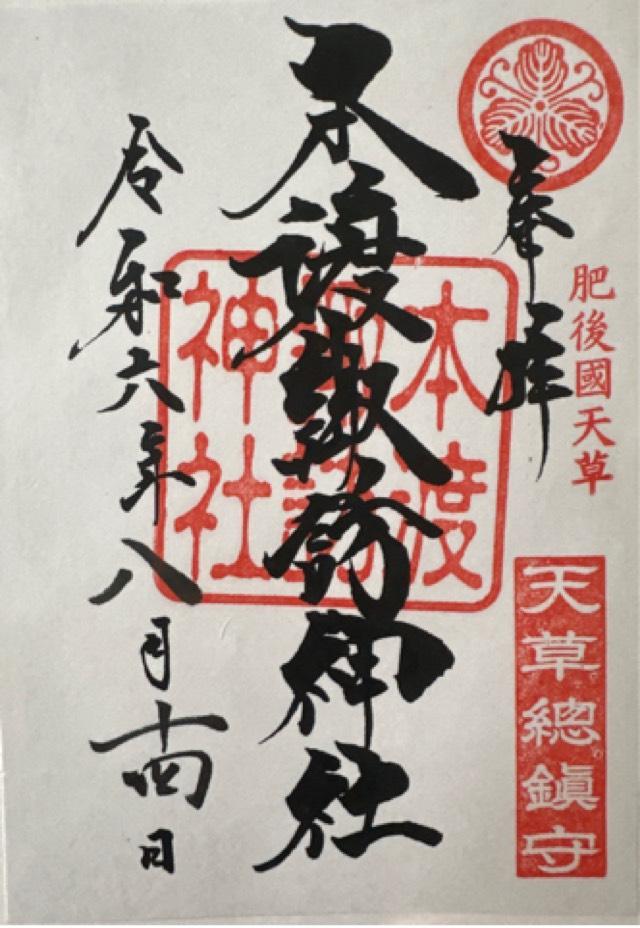 奉拝
肥後國天草
天草總鎮守
本渡諏訪神社
本渡
諏訪
神社
令和六年八月十四日